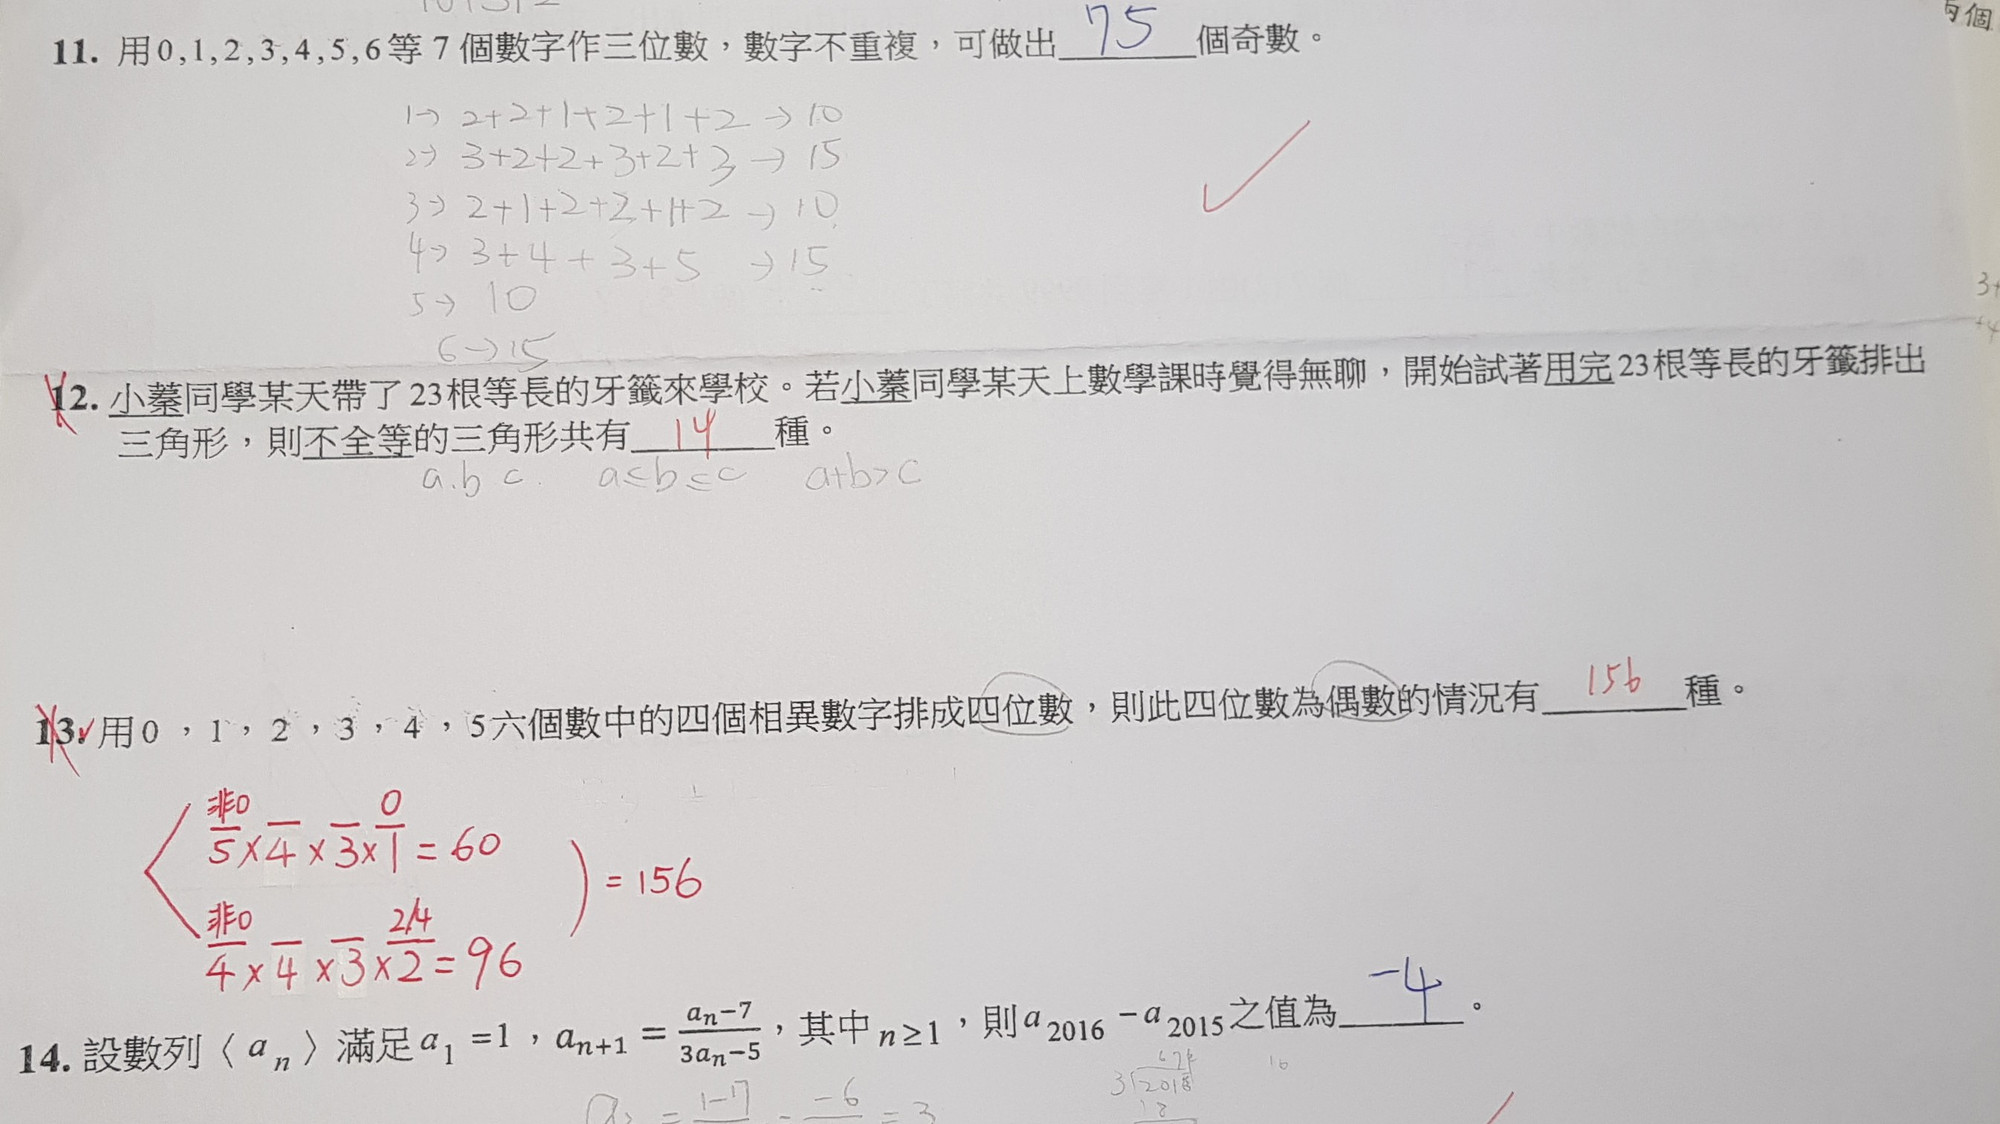 11. 用0,1,2,3,4,5,6等 7 個數字作三位數，數字不重複，可做出 75 個奇數。
1→ 2+2+1+2+1+2 → 10
2→ 3+2+2+3+2+3 → 15
3→ 2+1+2+2+1+2 → 10
4→ 3+4+3+5 → 15
5→ 10
6→15
12. 小蓁同學某天帶了23根等長的牙籤來學校。若小蓁同學某天上數學課時覺得無聊，開始試著用完23根等長的牙籤排出
三角形，則不全等的三角形共有 14 種。
a.b c. a≤b≤c a+b>c
13. 用0，1，2，3，4，5六個數中的四個相異數字排成四位數，則此四位數為偶數的情況有 156 種。
非0 0
5×4×3×1=60
=156
非0 2/4
4×4×3×2=96
14. 設數列〈a_n〉滿足a_1=1，a_{n+1}=\frac{a_n-7}{3a_n-5}，其中n≥1，則a_{2016}-a_{2015}之值為 -4 。